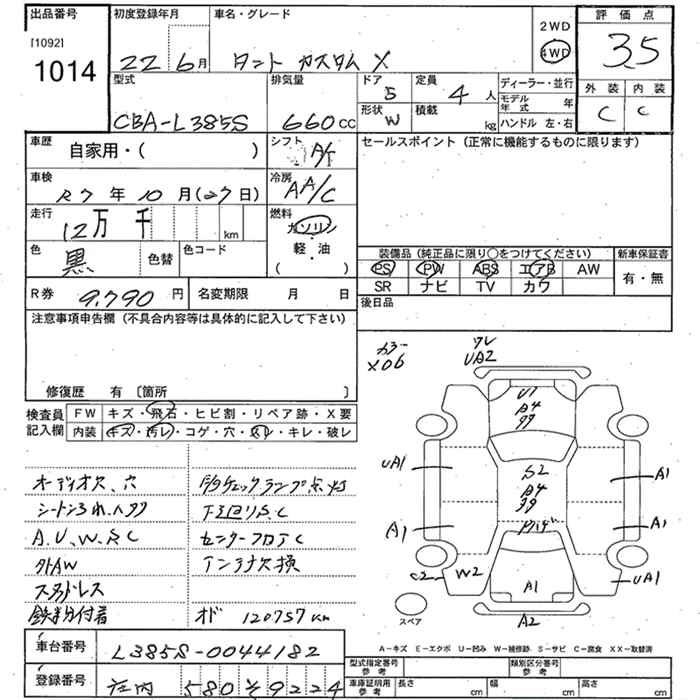 出品番号 初度登録年月 車名・グレード 2WD 評価点
[1092]
1014 22 6月 タント カスタム X 4WD 3.5
型式 排気量 ドア 5 定員 4人 ディーラー・並行 外装 内装
CBA-L385S 660cc 形状 W 積載 kg モデル年式 年 C C
ハンドル 左・右
車歴 自家用・( ) シフト A/T セールスポイント(正常に機能するものに限ります)
車検 R7年10月(27日) 冷房 AA/C
走行 12万 千 km 燃料 ガソリン
軽・油
( ・ )
色 黒 色替 色コード 装備品(純正品に限り○をつけてください) 新車保証書
PS PW ABS エアB AW 有・無
SR ナビ TV カワ
R券 9,790円 名変期限 月 日 後日品
注意事項申告欄(不具合内容等は具体的に記入して下さい)
修復歴 有 〔箇所 〕
カラー X06
UA2
検査員記入欄 FW キズ・飛石・ヒビ割・リペア跡・X要
内装 キズ・汚レ・コゲ・穴・スレ・キレ・破レ
オーディオ欠、穴
シートスレ、ヘタリ
A、U、W、S、C
外AW
スタッドレス
鉄粉付着
チェックランプ点灯
下廻りS、C
センターフロアC
アンテナ欠換
オド 120757km
U1
A4
99
S2
A4
39
UA1
A1
A1
A1
C2
W2
A1
UA1
A2
スペア
A-キズ E-エクボ U-凹み W-補修跡 S-サビ C-腐食 XX-取替済
車台番号 L385S-0044182
登録番号 庄内 580 そ 9224
型式指定番号 参考 類別区分番号 参考
車庫証明用 参考 長さ cm 幅 cm 高さ cm